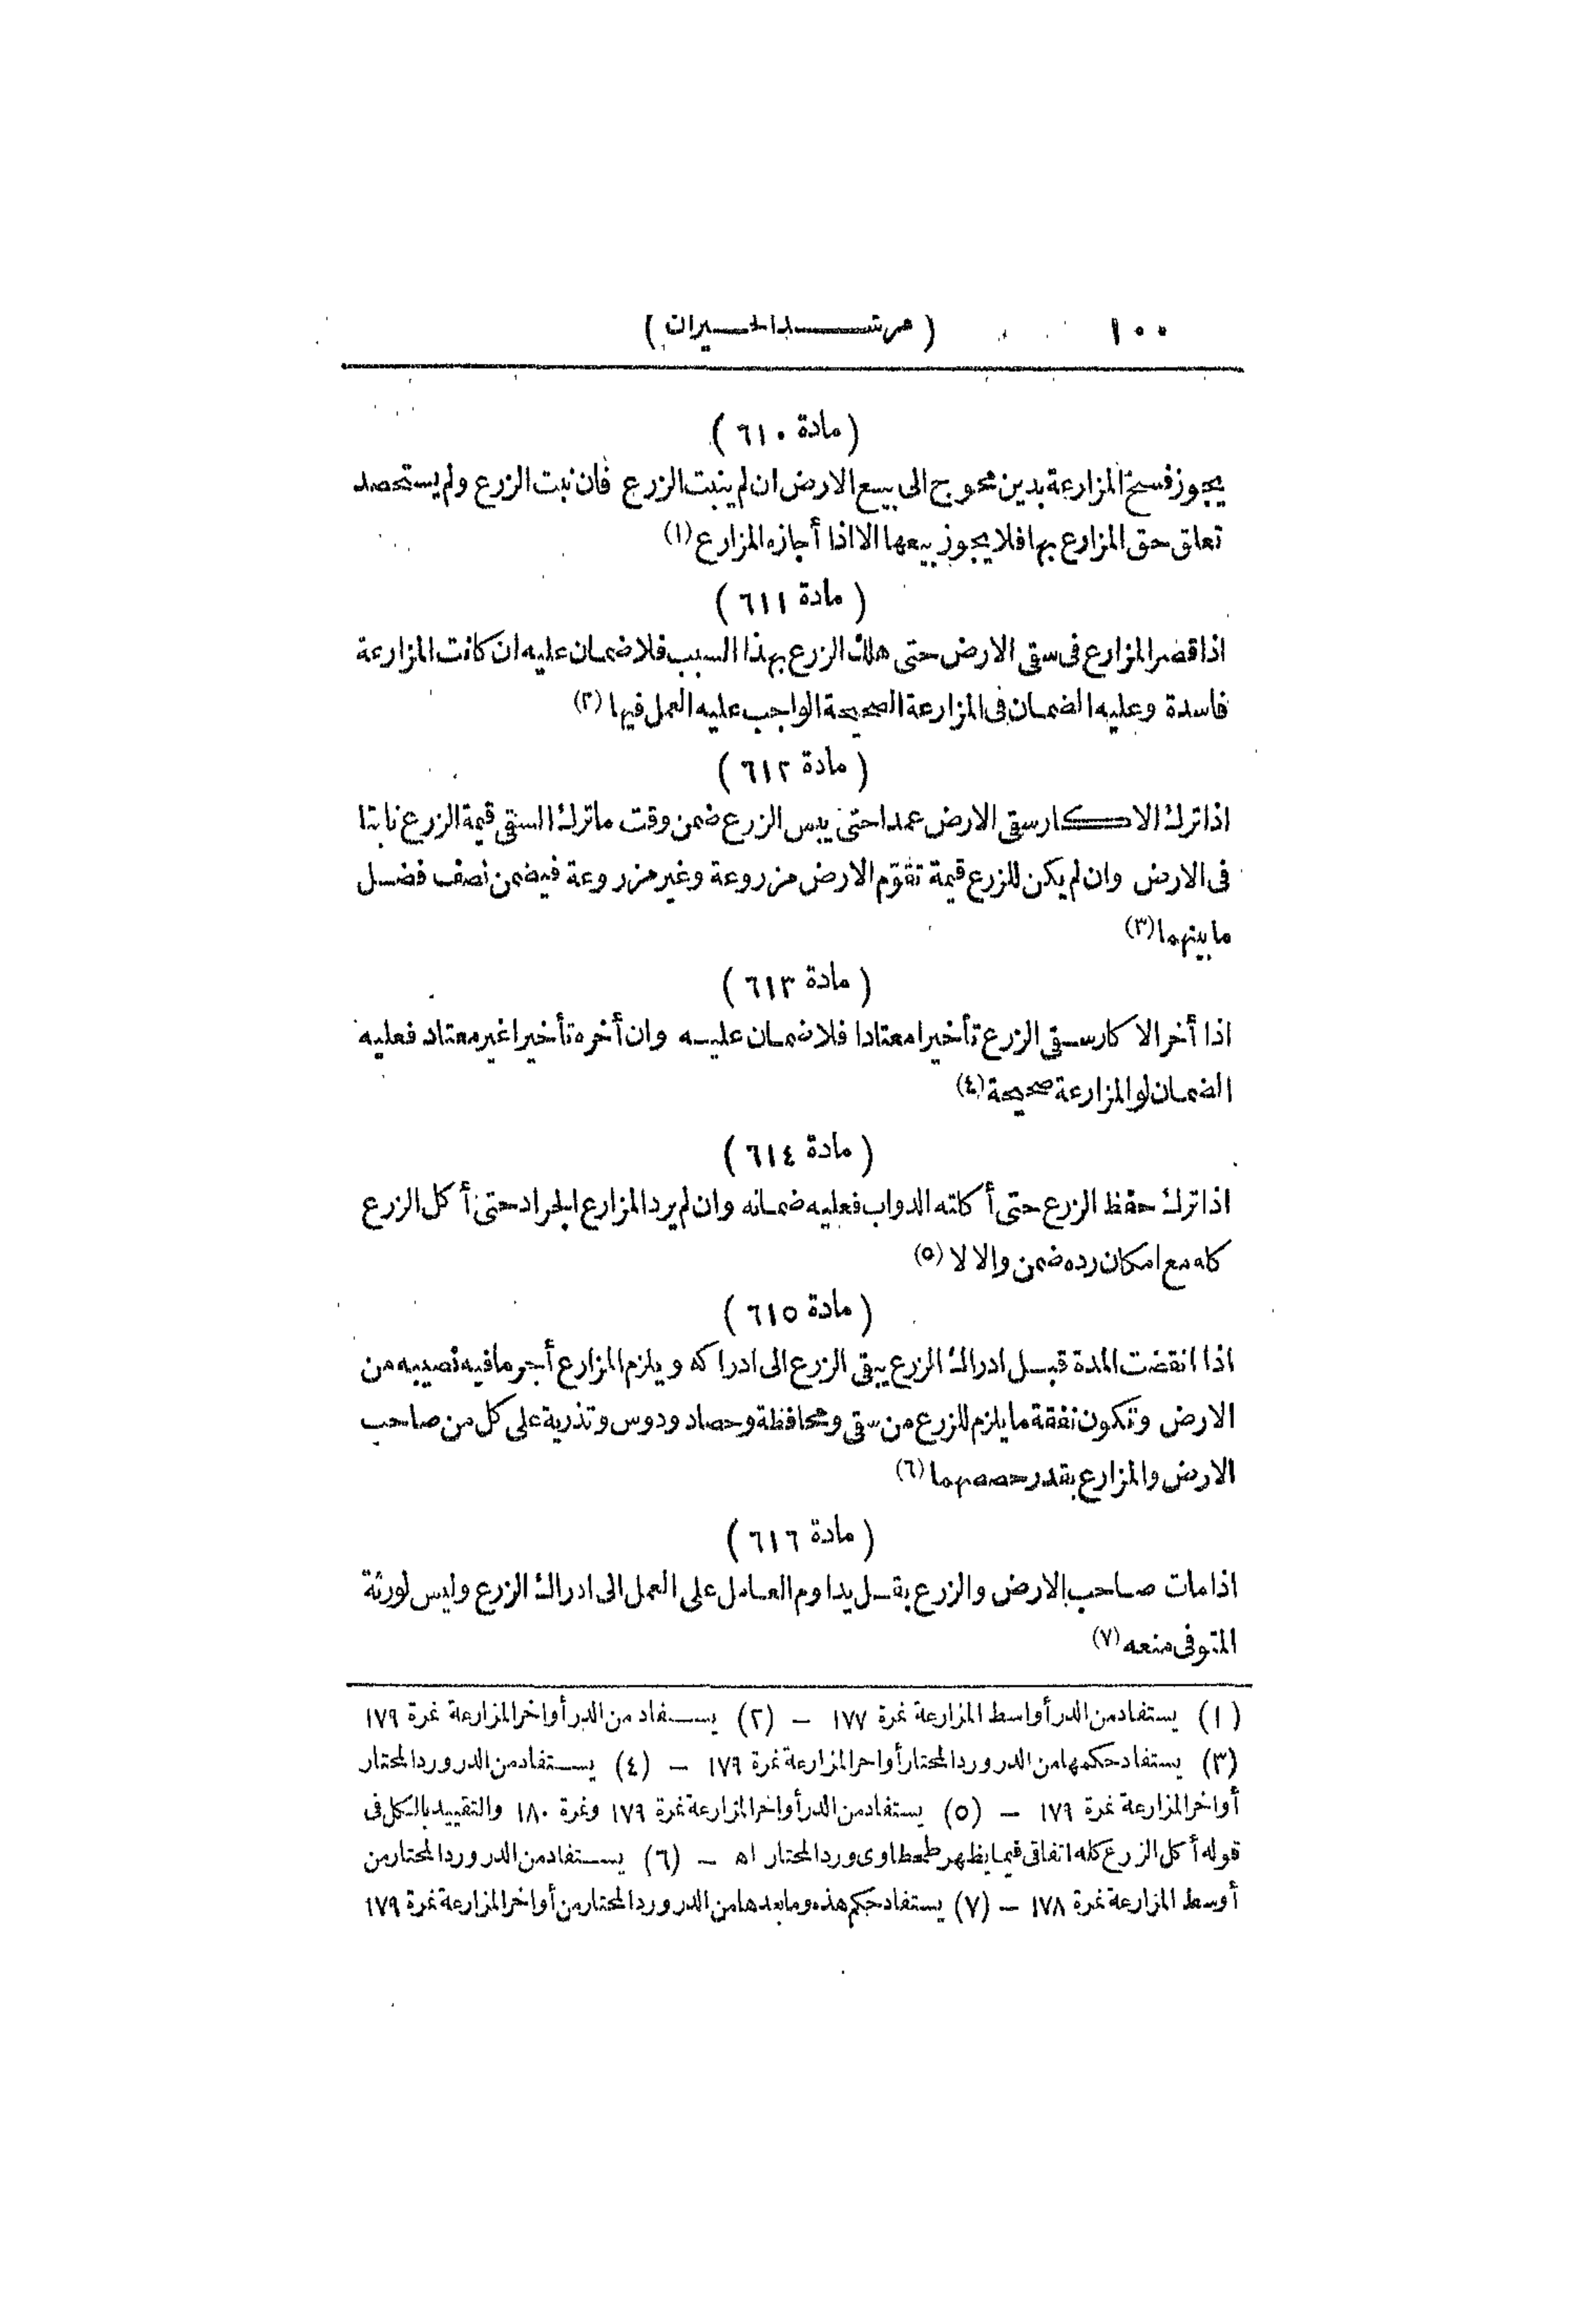 ١٠٠ (مرشد الحيران)
(مادة ٦١٠)
يجوز فسخ المزارعة بدين محوج الى بيع الارض ان لم ينبت الزرع فان نبت الزرع ولم يستحصد
تعلق حق المزارع بها فلا يجوز بيعها الا اذا أجازه المزارع (١)
(مادة ٦١١)
اذا قصر المزارع فى سقى الارض حتى هلك الزرع بهذا السبب فلا ضمان عليه ان كانت المزارعة
فاسدة وعليه الضمان فى المزارعة الصحيحة الواجب عليه العمل فيها (٢)
(مادة ٦١٢)
اذا ترك الاكار سقى الارض عمدا حتى يبس الزرع ضمن وقت ما ترك السقى قيمة الزرع نابتا
فى الارض وان لم يكن للزرع قيمة تقوّم الارض مزروعة وغير مزروعة فيضمن نصف فضل
ما بينهما (٣)
(مادة ٦١٣)
اذا أخر الاكار سقى الزرع تأخيرا معتادا فلا ضمان عليه وان أخره تأخيرا غير معتاد فعليه
الضمان لو المزارعة صحيحة (٤)
(مادة ٦١٤)
اذا ترك حفظ الزرع حتى أكلته الدواب فعليه ضمانه وان لم يرد المزارع الجراد حتى أكل الزرع
كله مع امكان رده ضمن والا لا (٥)
(مادة ٦١٥)
اذا انقضت المدة قبل ادراك الزرع يبقى الزرع الى ادراكه ويلزم المزارع أجر ما فيه نصيبه من
الارض وتكون نفقة ما يلزم للزرع من سقى ومحافظة وحصاد ودوس وتذرية على كل من صاحب
الارض والمزارع بقدر حصصهما (٦)
(مادة ٦١٦)
اذا مات صاحب الارض والزرع بقل يداوم العامل على العمل الى ادراك الزرع وليس لورثة
المتوفى منعه (٧)
(١) يستفاد من الدر أواسط المزارعة نمرة ١٧٧ – (٢) يستفاد من الدر أواخر المزارعة نمرة ١٧٩
(٣) يستفاد حكمها من الدر ورد المحتار أواخر المزارعة نمرة ١٧٩ – (٤) يستفاد من الدر ورد المحتار
أواخر المزارعة نمرة ١٧٩ – (٥) يستفاد من الدر أواخر المزارعة نمرة ١٧٩ ونمرة ١٨٠ والتقييد بالكل فى
قوله أكل الزرع كله اتفاقى فيما يظهر طحطاوى ورد المحتار اه – (٦) يستفاد من الدر ورد المحتار من
أوسط المزارعة نمرة ١٧٨ – (٧) يستفاد حكم هذه وما بعدها من الدر ورد المحتار من أواخر المزارعة نمرة ١٧٩